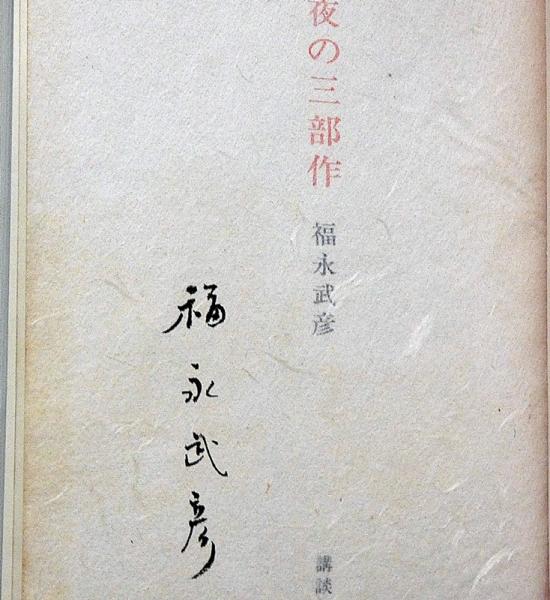 夜の三部作
福永武彦
講談
福永武彦